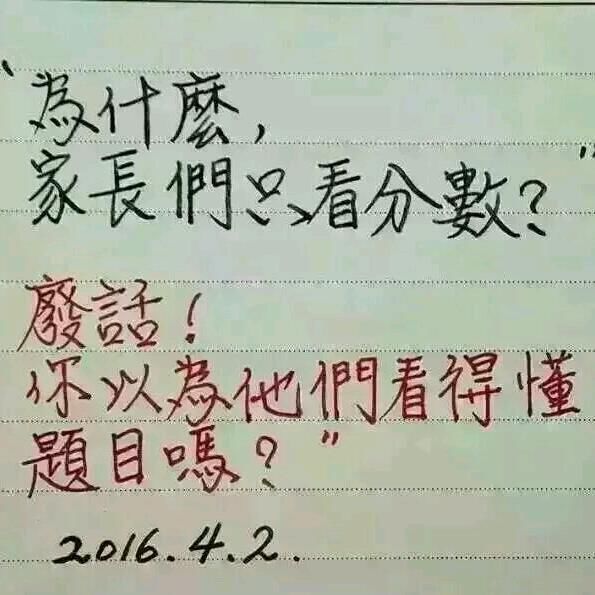 "為什麼,
家長們只看分數?"
廢話!
你以為他們看得懂
題目嗎?"
2016.4.2.